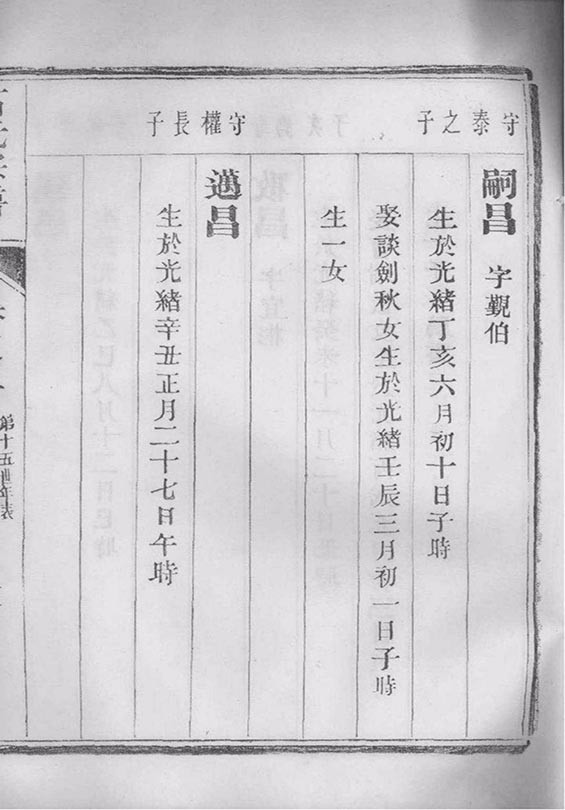 守泰之子
嗣昌 字覲伯
生於光緒丁亥六月初十日子時
娶談劍秋女生於光緒壬辰三月初一日子時
生一女
守權長子
邁昌
生於光緒辛丑正月二十七日午時
第十五世年表